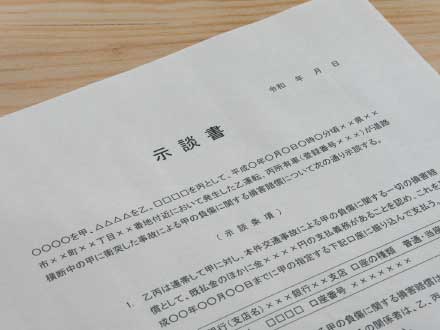 令和　年　月　日
示談書
○○○○を甲、△△△△を乙、□□□□を丙として、平成○年○月○日○時○分頃××県××
市××町×××丁目××番地付近において発生した乙運転、丙所有車(登録番号×××)が道路
横断中の甲に衝突した事故による甲の負傷に関する損害賠償について次の通り示談する。
(示談条項)
1．乙丙は連帯して甲に対し、本件交通事故による甲の負傷に関する一切の損害賠
償として、既払金のほかに金××××円の支払義務があることを認め、これを
成○○年○○月○○日までに甲の指定する下記口座に振り込んで支払う。
銀行(支店名)×××銀行××支店 口座の種類 普通・当座
□□□□ 口座番号 ×××××××
甲の負傷に関する損害賠償
の関係者は、乙、